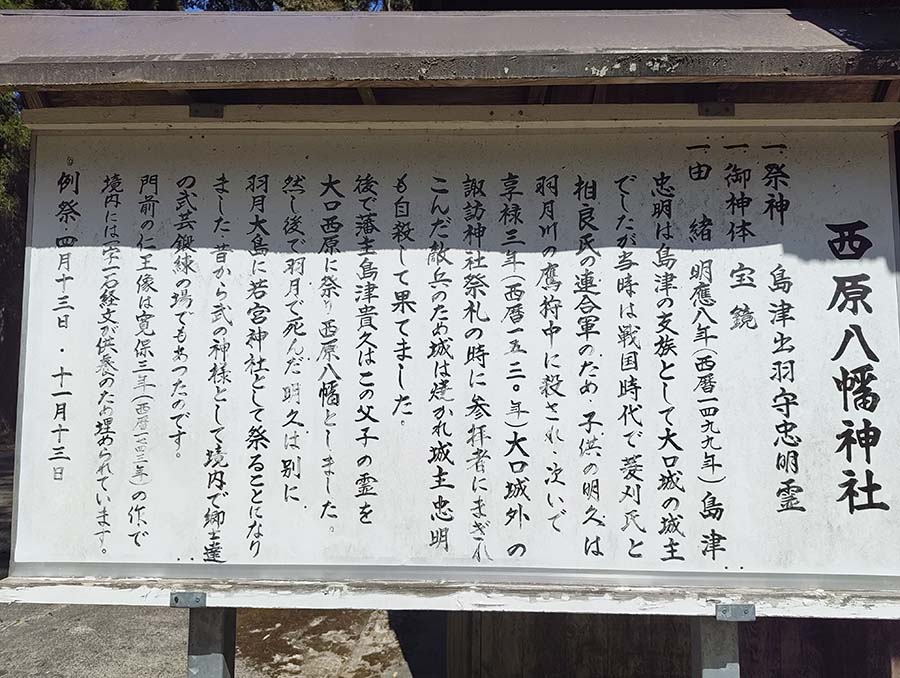 西原八幡神社
一、祭神　島津出羽守忠明霊
一、御神体　宝鏡
一、由緒　明應八年(西暦一四九九年)島津
忠明は島津の支族として大口城の城主
でしたが当時は戦国時代で菱刈氏と
相良氏の連合軍のため・子供の明久は
羽月川の鷹狩中に殺され・次いで
享禄三年(西暦一五三〇年)大口城外の
諏訪神社祭礼の時に参拝者にまぎれ
こんだ敵兵のため城は焼かれ城主忠明
も自殺して果てました。
後で藩主島津貴久はこの父子の霊を
大口西原に祭り西原八幡としました。
然し後で羽月で死んだ明久は別に
羽月大島に若宮神社として祭ることになり
ました・昔から武の神様として境内で郷士達
の武芸鍛練の場でもあったのです。
門前の仁王像は寛保三年(西暦一七四三年)の作で
境内には一字一石経文が供養のため埋められています。
例祭・四月十三日・十一月十三日